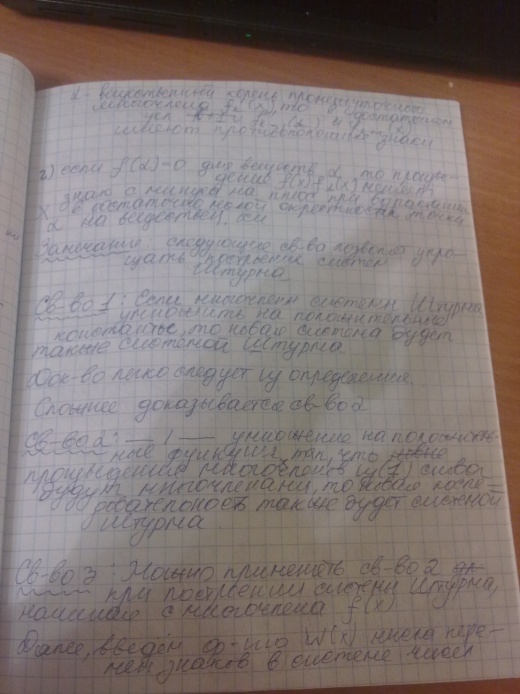 α - вещественный корень промежуточного
многочлена f_k(x), то
имеют противоположные знаки
2) если f(α)=0 для веществ. α, то произве-
дение f(x) f_1(x) меняет
знак с минуса на плюс при
x в достаточно малой окрестности точки
α на веществен. оси
Замечание следующие св-во позволяет упро-
щать построение систем
Штурма
Св-во 1: Если многочлены системы Штурма
умножить на положительные
константы, то новая система будет
также системой Штурма.
Док-во легко следует из определения.
Сложнее доказывается св-во 2
Св-во 2: — 1 — умножение на положитель-
ные функции, так, что
произведение многочленов из (1) снова
будут многочленами, то новая после-
довательность также будет системой
Штурма
Св-во 3: Можно применять св-во 2
при построении системы Штурма,
начиная с многочлена f(x)
Далее, введём ф-ию W(x) числа пере-
мен знаков в системе чисел